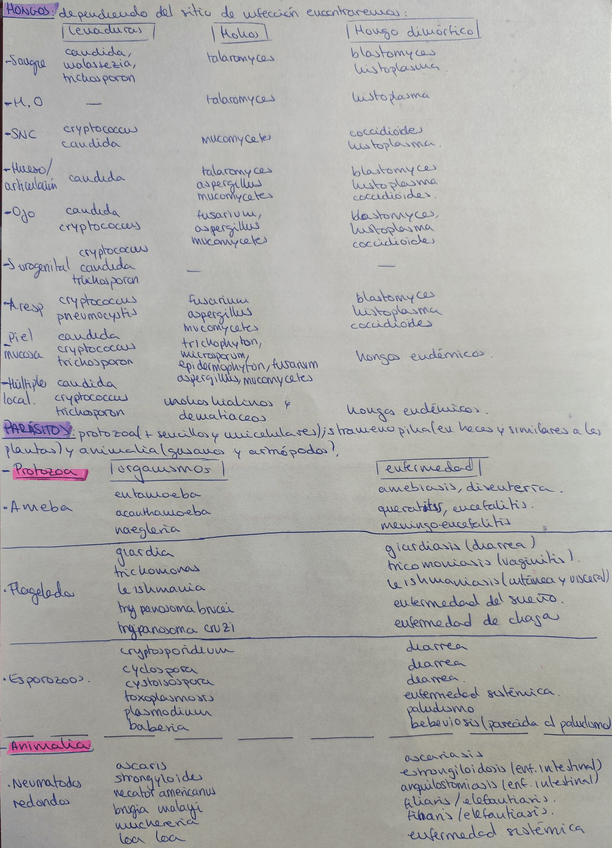 HONGOS: dependiendo del sitio de infección encontraremos:
Levaduras Mohos Hongo dimórfico
-Sangre candida, malassezia, trichosporon talaromyces blastomyces histoplasma
-M.O — talaromyces histoplasma
-SNC cryptococcus candida mucomycetes coccidioides histoplasma.
-Hueso/articulación candida talaromyces aspergillus mucomycetes blastomyces histoplasma coccidioides.
-Ojo candida cryptococcus fusarium, aspergillus mucomycetes blastomyces, histoplasma coccidioides
-S urogenital cryptococcus candida trichosporon — —
-A resp cryptococcus pneumocystis fusarium aspergillus mucomycetes blastomyces histoplasma coccidioides
-Piel mucosa candida cryptococcus trichosporon trichophyton, microsporum, epidermophyton, fusarium aspergillus, mucomycetes hongos endémicos.
-Múltiple local. candida cryptococcus trichosporon mohos hialinos y dematiaceos hongos endémicos.
PARÁSITOS: protozoa (+ sencillos y unicelulares), stramenopila (en heces y similares a las
plantas) y animalia (gusanos y artrópodos).
- Protozoa organismos enfermedad
·Ameba entamoeba amebiasis, disentería.
acanthamoeba queratitis, encefalitis.
naegleria meningoencefalitis
·Flagelados giardia giardiasis (diarrea)
trichomonas tricomoniasis (vaginitis).
leishmania leishmaniasis (cutánea y visceral)
trypanosoma brucei enfermedad del sueño.
trypanosoma cruzi enfermedad de chagas
·Esporozoos. cryptosporidium diarrea
cyclospora diarrea
cystoisospora diarrea.
toxoplasmosis enfermedad sistémica.
plasmodium paludismo
baberia bebeviosis (parecida al paludismo)
- Animalia
·Neumatodos redondos ascaris ascariasis
strongyloides estrongiloidosis (enf. intestinal)
necator americanus anquilostomiasis (enf. intestinal)
brugia malayi filiaris / elefantiasis.
wuchereria filiaris / elefantiasis.
loa loa enfermedad sistémica